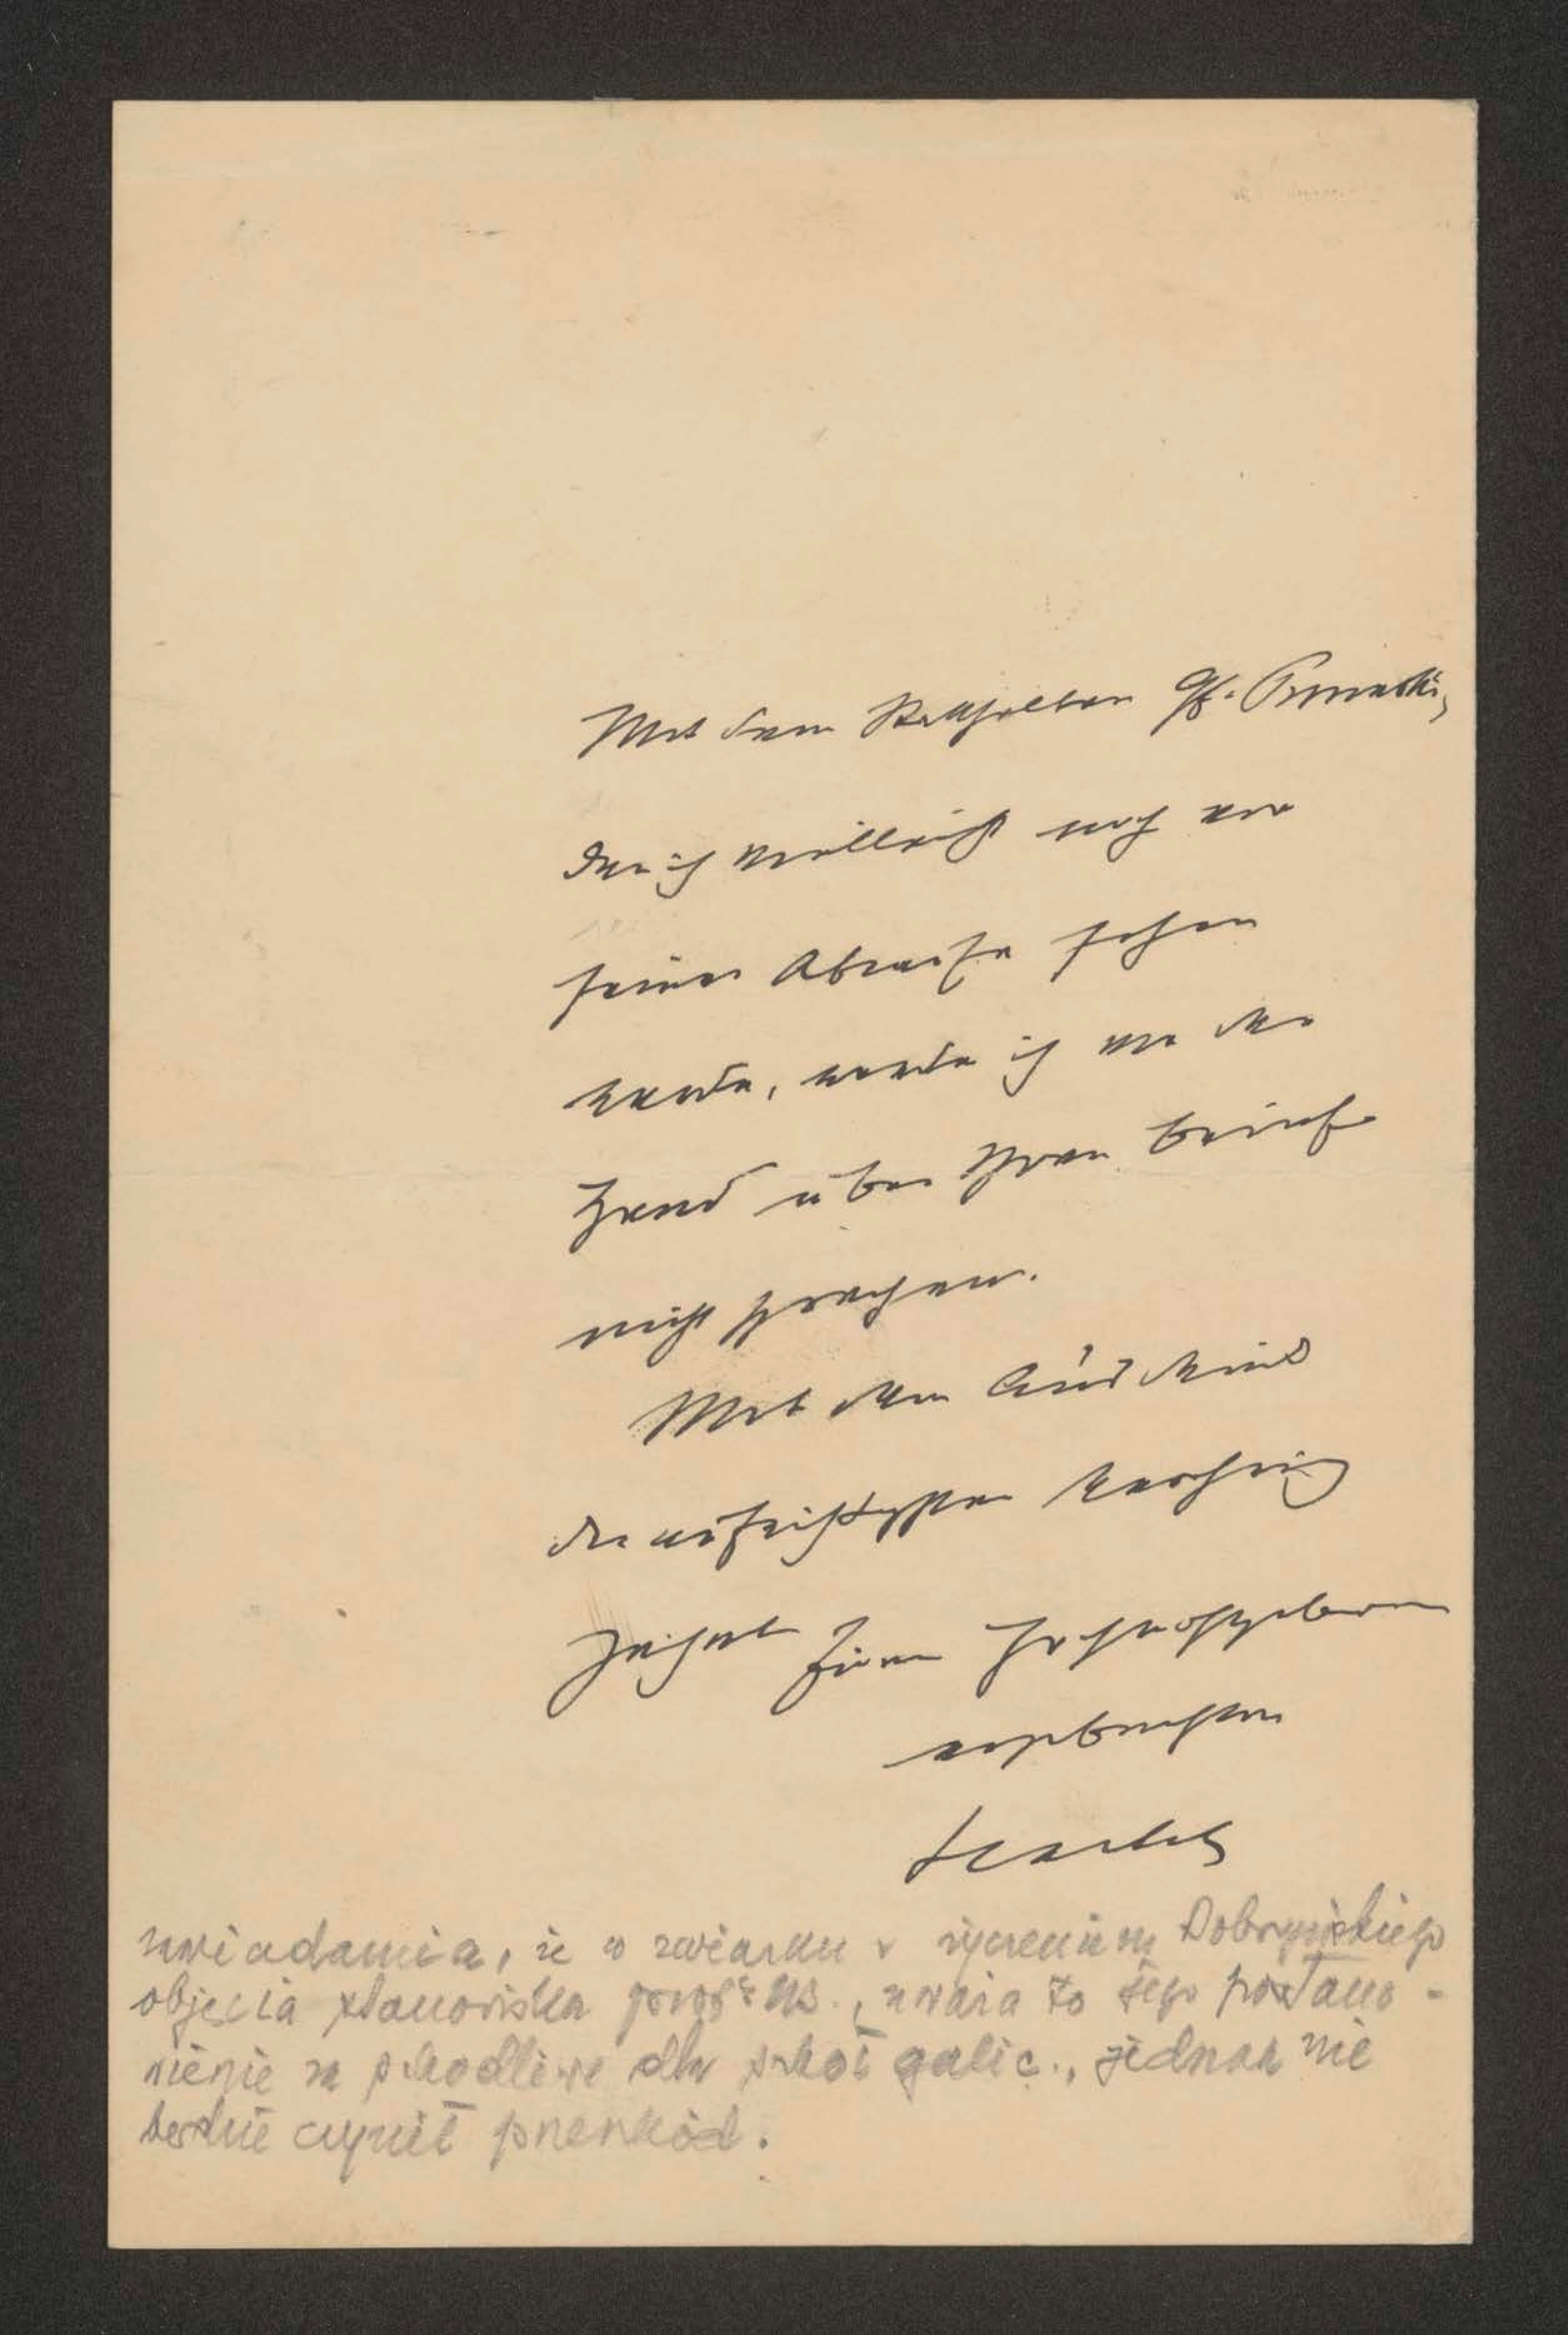 Mit dem Statthalter Gf. Pininski,
den ich vielleicht noch vor
seiner Abreise sehen
werde, werde ich vor der
Hand über Ihren Brief
nicht sprechen.
Mit dem Ausdruck
der aufrichtigsten Verehrung
Euer Hochwohlgeboren
ergebenster
Hartel
uwiadamia, że w związku z życzeniem Dobrzyńskiego
objęcia stanowiska prof. , uważa to jego postano-
wienie za szkodliwe dla szkół galic., jednak nie
będzie czynił przeszkód.